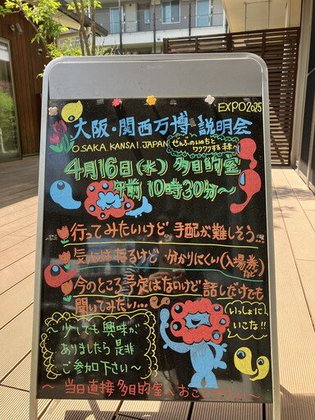 EXPO2025
大阪・関西万博 説明会
OSAKA KANSAI, JAPAN
ぜんぶのいのちと
ワクワクする未来へ
4月16日(水) 多目的室
午前10時30分〜
行ってみたいけど、手配が難しそう…
気にはなるけど 分かりにくい(入場券等)
今のところ予定はないけど話しだけでも
聞いてみたい…
いっしょに
いこな!!
〜少しでも興味が
ありましたら是非
ご参加下さい〜
〜当日直接多目的室へ